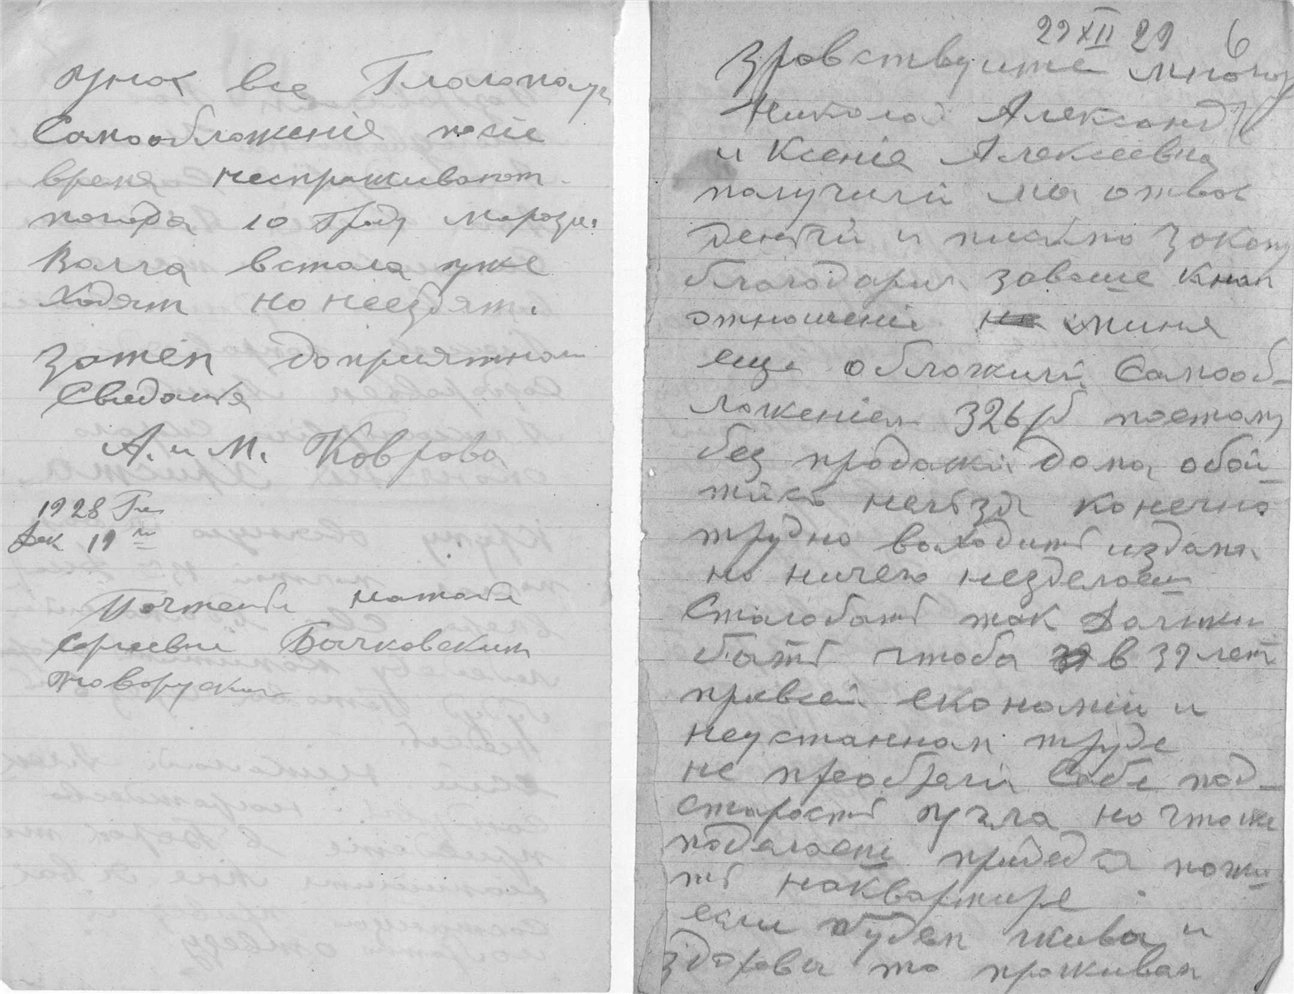 у нас все по
Самообложенiе пасiе
время неспрашивают.
погода 10 Град Мороза.
Волга встала уже
Ходят но неездят.
затем доприятнаго
Сведанiя
А. и М. Коврова
1928 Г.
Дек 19 го
Почтенiе
Сергеевне Бычковским
29 XII 29 6
Здравствуите многоу
Николай Александр
и Ксенiя Алексеевна
получили мы от вас
денги и писмо за кою
благодарим заваше к нам
отношенiе
еще обложили Самооб-
ложенiем 326 рб поетому
без продажи дома обои
тись нельзя конечно
трудно выходить издома
но ничего незделаеш
Сталобыть так Должно
быть чтобы в 39 лет
привсей економiи и
неустанном труде
не преобрели Себе под-
старость угла но чтоже
поделаеш придется пожи
ть наквартире
если будем живы и
здоровы то проживем